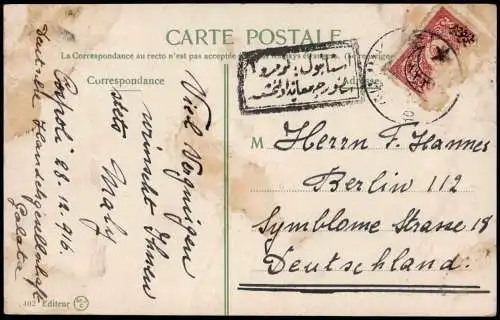 CARTE POSTALE
La Correspondance au recto n'est pas acceptée
Correspondance
Viel Vergnügen
wünscht Ihnen
stets Maly
Conpoli 28.12.916.
Deutsche Handelsgesellschaft
Galata
402 Editeur M C
استانبول
M Herrn F. Hannes
Berlin 112
Symblome Strasse 18
Deutschland.